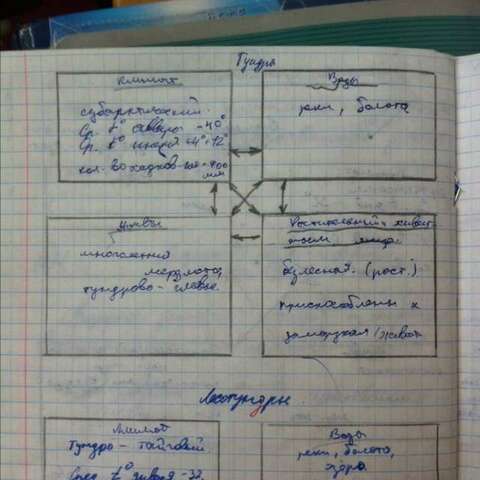 Тундры
климат
субарктический.
Ср. t° января -40°
Ср. t° июля +4°+12°
кол. во осадков
мм
Воды
реки, болота
почвы
многолетняя
мерзлота,
тундрово-глеевые
Растительный и живот
безлесная. (раст.)
приспособлены к
Лесотундры
Климат
Тундро-таёжный.
Сред. t° января -32.
Воды
реки, болота,
озёра.